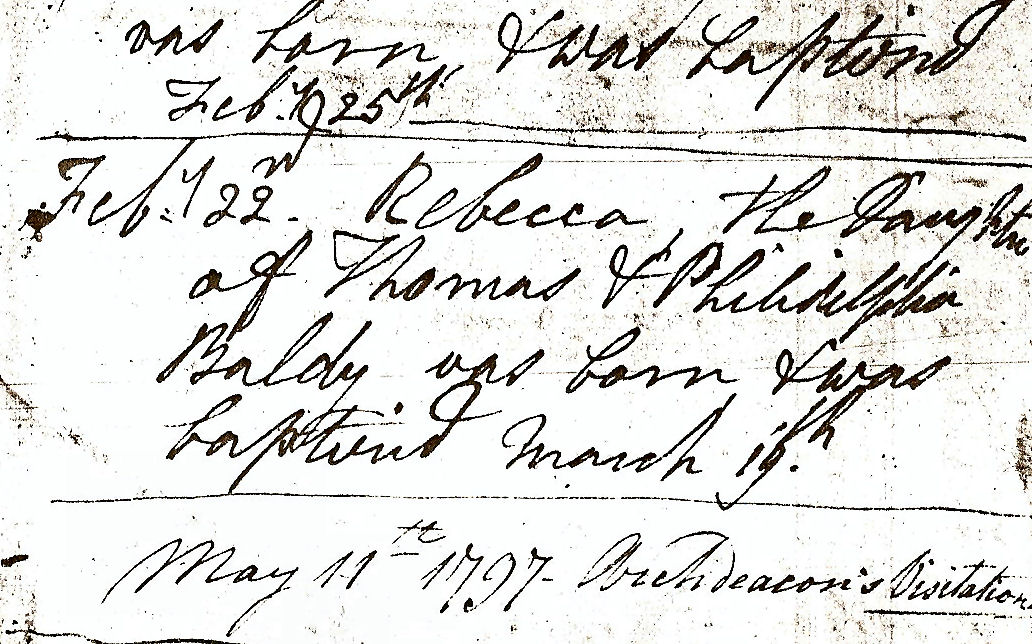 was born, & was baptized
Feby 25th
Feby 22n. Rebecca, the Daughter
of Thomas & Philidelphia
Baldy was born, & was
baptized March 19th
May 11th 1797- Archdeacon's Visitation